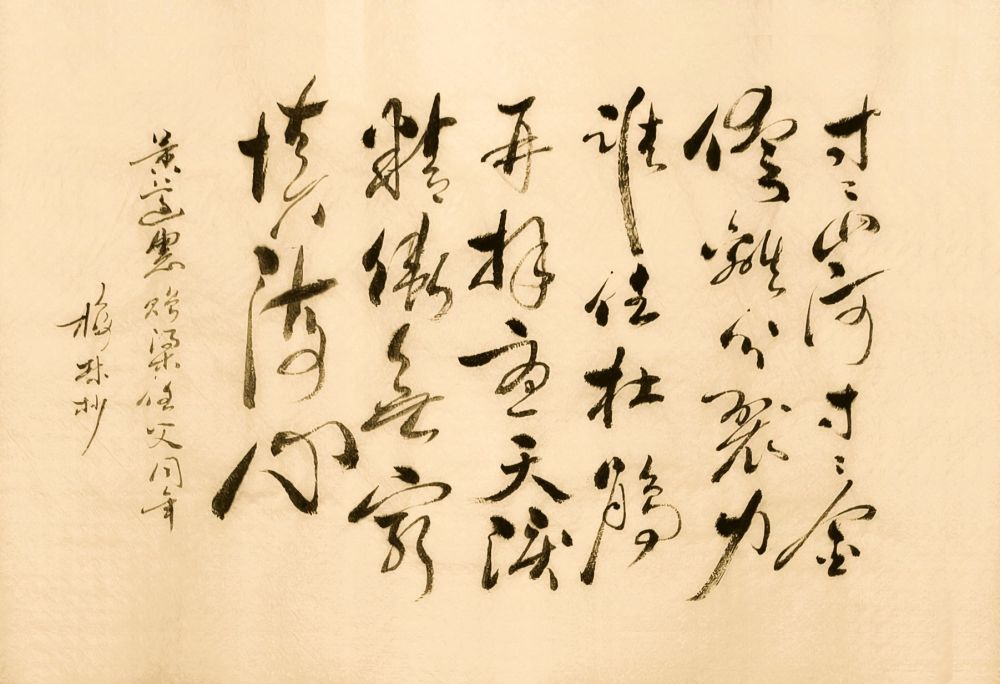 寸〻山河寸〻金
侉離分裂力
誰任杜鵑
再拜憂天淚
精衛無窮
填海心
黃遵憲贈梁任父同年
抄